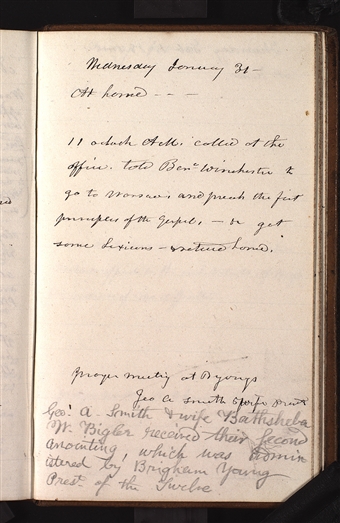 Wednesday January 31 —
At home — — —
11 o clock A.M. called at the
office. told Benn Winchester to
go to Warsaw and preach the first
principles of the Gospel. — & get
some Lexicons — & return home.
prayer meeting at B Youngs
Geo A Smith & wife Prest
Geo. A. Smith & wife Bathsheba
W. Bigler received their second
anointing, which was admin
istered by Brigham Young
Prest of the Twelve